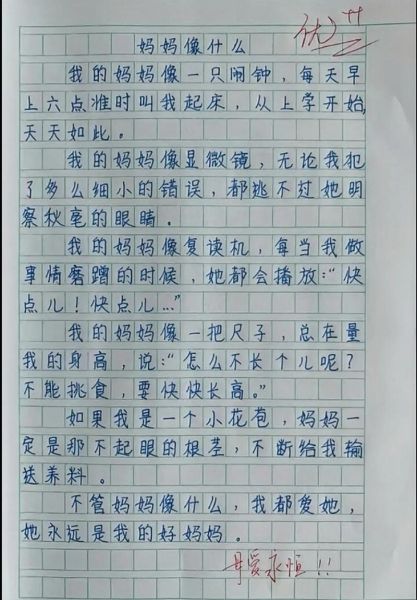 优++
妈妈像什么
我的妈妈像一只闹钟，每天早
上六点准时叫我起床，从上学开始，
天天如此。
我的妈妈像显微镜，无论我犯
了多么细小的错误，都逃不过她明
察秋毫的眼睛。
我的妈妈像复读机，每当我做
事情磨蹭的时候，她都会播放：“快
点儿！快点儿…”
我的妈妈像一把尺子，总在量
我的身高，说：“怎么不长个儿呢？
不能挑食，要快快长高。”
如果我是一个小花苞，妈妈一
定是那不起眼的根茎，不断给我输
送养料。
不管妈妈像什么，我都爱她，
她永远是我的好妈妈。
母爱永恒！！